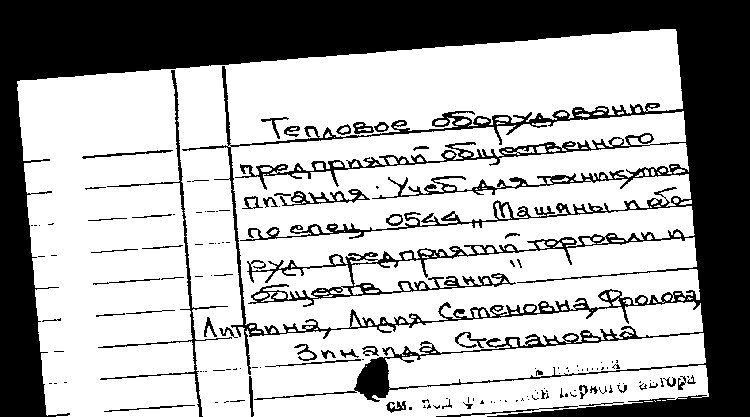 Тепловое оборудование
предприятий общественного
питания: Учеб. для техникумов
по спец. 0544 „Машины и обо-
руд. предприятий торговли и
обществ питания"
Литвина, Лидия Семеновна, Фролова,
Зинаида Степановна.
см. под первого автора